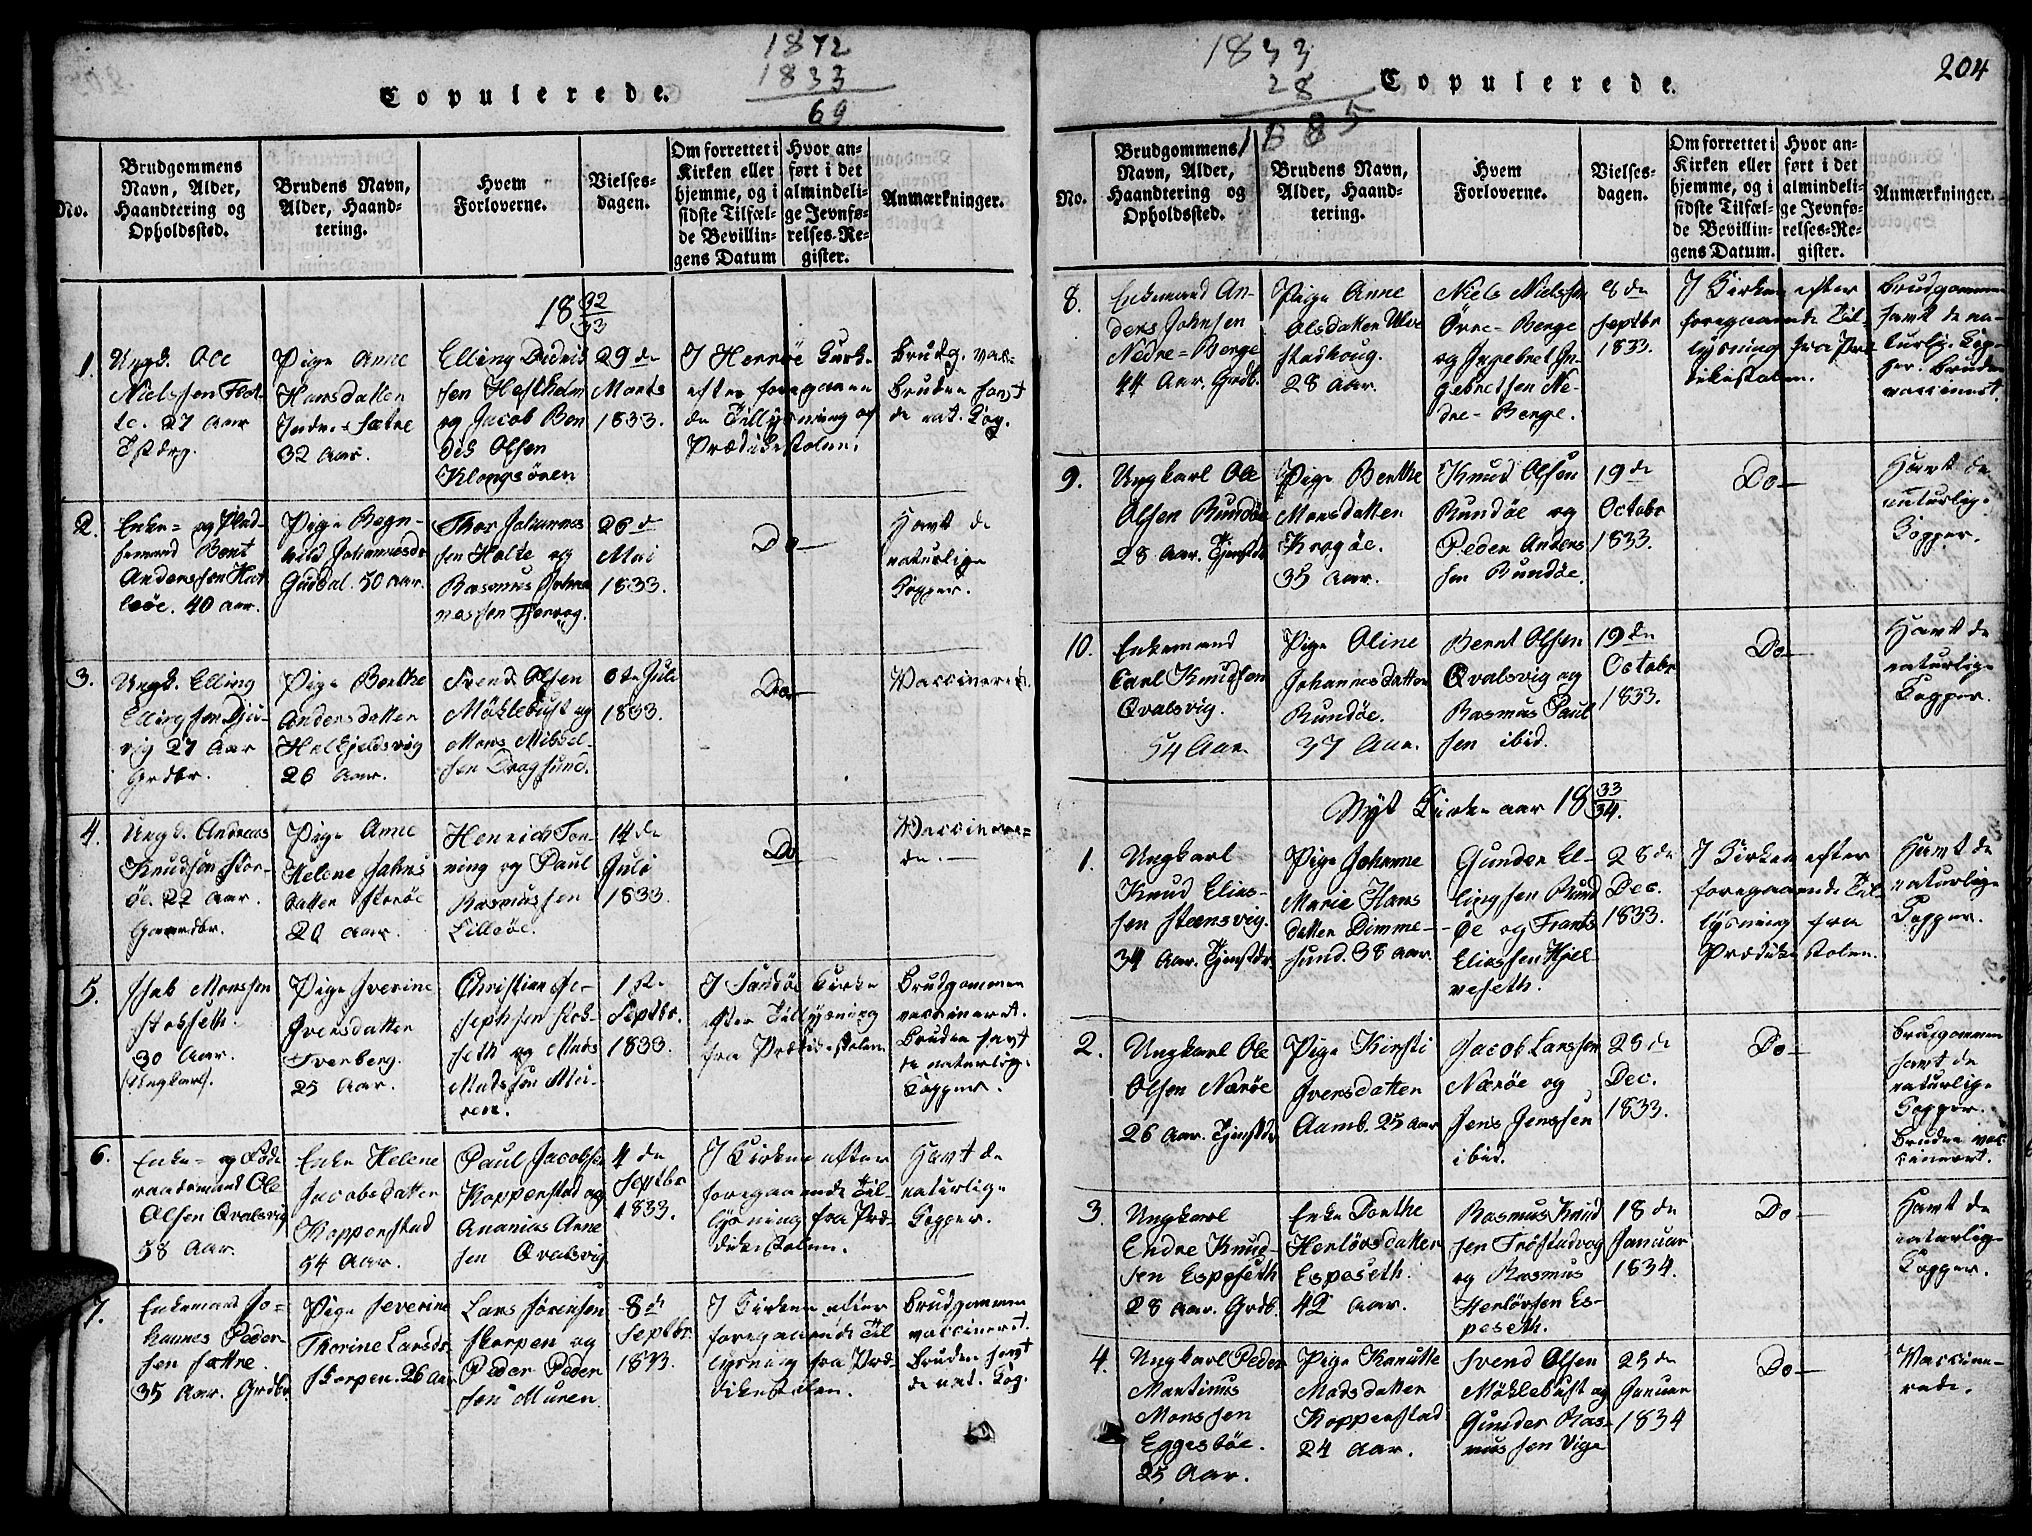 1872
1833
69
Copulerede.
No.
Brudgommens
Navn, Alder,
Haandtering og
Opholdssted.
Brudens Navn,
Alder, Haand-
tering.
Hvem
Forloverne.
Vielses-
dagen.
Om forrettet i
Kirken eller
hjemme, og i
sidste Tilfæl-
de Bevillin-
gens Datum
Hvor an-
ført i det
almindeli-
ge Jevnfø-
relses-Re-
gister.
Anmærkninger.
18 32/33
1.
Ungk. Ole
Nielssen
27 Aar
Pige Anne
Hansdatter
Indre-Sætre
32 Aar.
Elling Didrik
sen
og Jacob Ben
dik Olsen
Klongsören
29 de
Marts
1833.
I Herröe Kirke
efter foregaaen
de Tillysning af
Prædikestolen.
Brudg. vac.
Bruden havt
de nat. Kop.
2.
Enke- og
Bent
Anderssen
40 Aar.
Pige
Johannesdr
Gurdal. 50 Aar.
Thor Johannes
sen Holte og
Rasmus
26 de
Mai
1833.
Do
Havt de
naturlige
Kopper.
3.
Ungk. Elling
Ellingsen
27 Aar
Grdbr.
Pige Berthe
Andersdatter
26 Aar.
Svend Olsen
Möklebust og
Mons Mikkel-
sen Dragsund.
Juli
1833.
Do
Vaccinerede.
4.
Ungk. Andreas
Knudsen Stor-
öe. 22 Aar.
Gaardbr.
Pige Anne
Helene Johns
datter Storöe
20 Aar.
Henrich Ton-
ning og Paul
Rasmussen
Lillöe.
14 de
Juli
1833.
Do
Vaccinere-
de.
5.
Monssen
Stokseth.
30 Aar.
Ungkarl.
Pige Iverine
Iversdatter
Sverberg.
25 Aar.
Christian Jo-
sephsen Stok-
seth og Mads
Madssen Mu-
ren.
1 ste
Septbr.
1833.
I Sandöe Kirke
efter Tillysning
fra Prædikestolen
Brudgommen
vaccineret.
Bruden havt
de naturlige
Kopper.
6.
Enke- og Föde
raadsmand Ole
Olsen Qvalsvig
58 Aar.
Enke Helene
Jacobsdatter
Koppenstad
54 Aar.
Paul Jacobsen
Koppenstad og
Ananias Arne
sen Qvalsvig
4 de
Septbr
1833.
I Kirken efter
foregaaende Til-
lysning fra Præ-
dikestolen.
Havt de
naturlige
Kopper.
7.
Enkemand Jo-
hannes Peder-
sen Sætre.
35 Aar. Grdbr.
Pige Severine
Thorine Larsdr
Skorpen. 26 Aar
Lars Sörensen
Skorpen og
Peder Peder
sen Muren
8 de
Septbr.
1833.
I Kirken efter
foregaaende Til
lysning fra Præ-
dikestolen.
Brudgommen
vaccineret.
Bruden havt
de nat. Kop.
1833
28
1885
Copulerede.
204
No.
Brudgommens
Navn, Alder,
Haandtering og
Opholdssted.
Brudens Navn,
Alder, Haand-
tering.
Hvem
Forloverne.
Vielses-
dagen.
Om forrettet i
Kirken eller
hjemme, og i
sidste Tilfæl-
de Bevillin-
gens Datum.
Hvor an-
ført i det
almindeli-
ge Jevnfø-
relses-Re-
gister.
Anmærkninger.
8.
Enkemand An-
ders Johnsen
Nedre-Berge
44 Aar, Grdb.
Pige Anne
Olsdatter Ulve
stadhoug.
28 Aar.
Niels Nielssen
Övre-Berge
og Ingebret In
gebretsen Ne-
dre-Berge.
8 de
Septbr
1833.
I Kirken efter
foregaaende Til-
lysning fra Præ
dikestolen.
Brudgommen
havt de na-
turlig. Kop-
per. Bruden
vaccineret.
9.
Ungkarl Ole
Olsen Rundöe
28 Aar. Tjenstdr
Pige Berthe
Monsdatter
Kragöe.
35 Aar.
Knud Olsen
Rundöe og
Peder Anders
sen Rundöe.
19 de
Octobr
1833.
Do
Havt de
naturlige
Kopper.
10.
Enkemand
Carl Knudsen
Qvalsvig.
54 Aar.
Pige Oline
Johannesdatter
Rundöe.
37 Aar.
Bernt Olsen
Qvalsvig og
Rasmus Paul
sen ibid.
19 de
Octobr
1833.
Do
Havt de
naturlige
Kopper.
Nyt Kirke aar 18 33/34.
1.
Ungkarl
Knud Elias-
sen Steensvig.
34 Aar. Tjenstdr.
Pige Johanne
Marie Hans
datter Dimme-
sund. 38 Aar
Gunder El-
lingsen Rund
öe og Frants
Eliassen Kjel-
veseth.
28 de
Dec.
1833.
I Kirken efter
foregaaende Til-
lysning fra
Prædikestolen.
Havt de
naturlige
Kopper.
2.
Ungkarl Ole
Olsen Naröe
26 Aar. Tjenstdr
Pige Kirsti
Iversdatter
Aamb. 25 Aar
Jacob Larssen
Naröe og
Jens Jenssen
ibid.
28 de
Dec.
1833.
Do
Brudgommen
havt de
naturlige
Kopper.
Bruden vac
cineret.
3.
Ungkarl
Endre Knud-
sen Espeseth
28 Aar. Grdb.
Enke Dorthe
Herlövsdatter
Espeseth.
42 Aar.
Rasmus Knud
sen Fröstadvog
og Rasmus
Herlövsen Es-
peseth.
18 de
Januar
1834.
Do
Havt de
naturlige
Kopper.
4.
Ungkarl Peder
Martinus
Monssen
Eggesböe.
25 Aar.
Pige Kanutte
Madsdatter
Koppenstad
24 Aar.
Svend Olsen
Möklebust og
Gunder Ras-
mussen Vige
25 de
Januar
1834
Do
Vaccine-
rede.